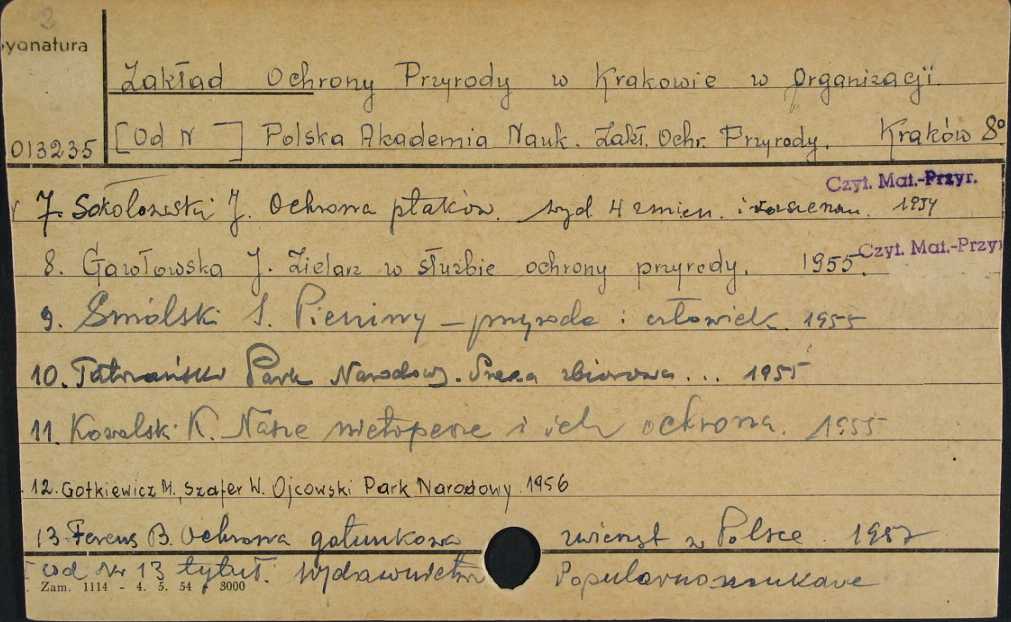 2
yonatura
Zakład Ochrony Przyrody w Krakowie w Organizacji
013235 [Od N ] Polska Akademia Nauk. Zakł. Ochr. Przyrody. Kraków 8°
Czyt. Mat.-Przyr.
7. Sokołowski J. Ochrona ptaków. wyd 4 zmien. i 1954
8. Gawłowska J. Zielarz w służbie ochrony przyrody. 1955. Czyt. Mat.-Przy
9. Smólski S. Pieniny – przyroda i człowiek. 1955
10. Tatrzański Park Narodowy. Praca zbiorowa... 1955
11. Kowalski K. Nasze nietoperze i ich ochrona. 1955
12. Gotkiewicz M., Szafer W. Ojcowski Park Narodowy 1956
13. Ferens B. Ochrona gatunkowa zwierząt w Polsce. 1957
od Nr 13 tytuł. Wydawnictwa Popularnonaukowe
Zam. 1114 - 4. 5. 54 - 3000